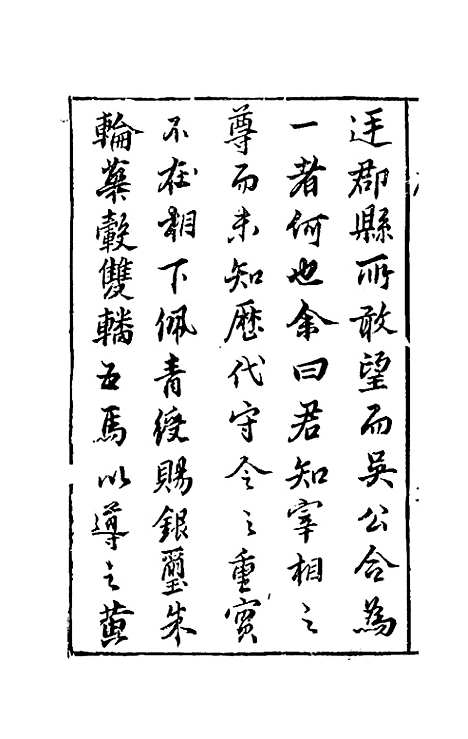 迋郡縣所敢望而吳公合為
一者何也余曰君知宰相之
尊而未知歷代守令之重實
不在相下佩青綬賜銀璽朱
輪華轂雙轓五馬以導之黃